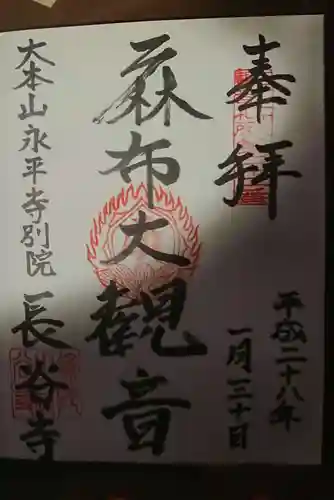 奉拝
平成二十八年
一月三十日
麻布大観音
大本山永平寺別院
長谷寺